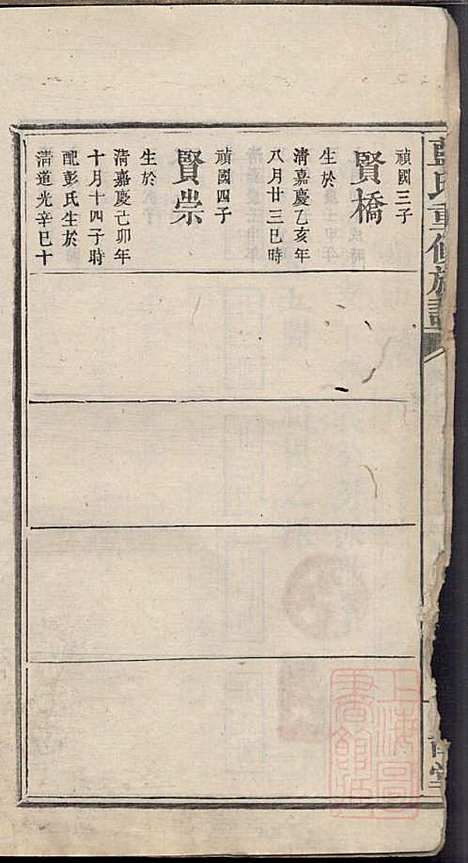 藍氏重修族譜
禎國三子
賢橋
生於
清嘉慶乙亥年
八月廿三巳時
禎國四子
賢崇
生於
清嘉慶己卯年
十月十四子時
配彭氏生於
清道光辛巳十
上海圖書館藏